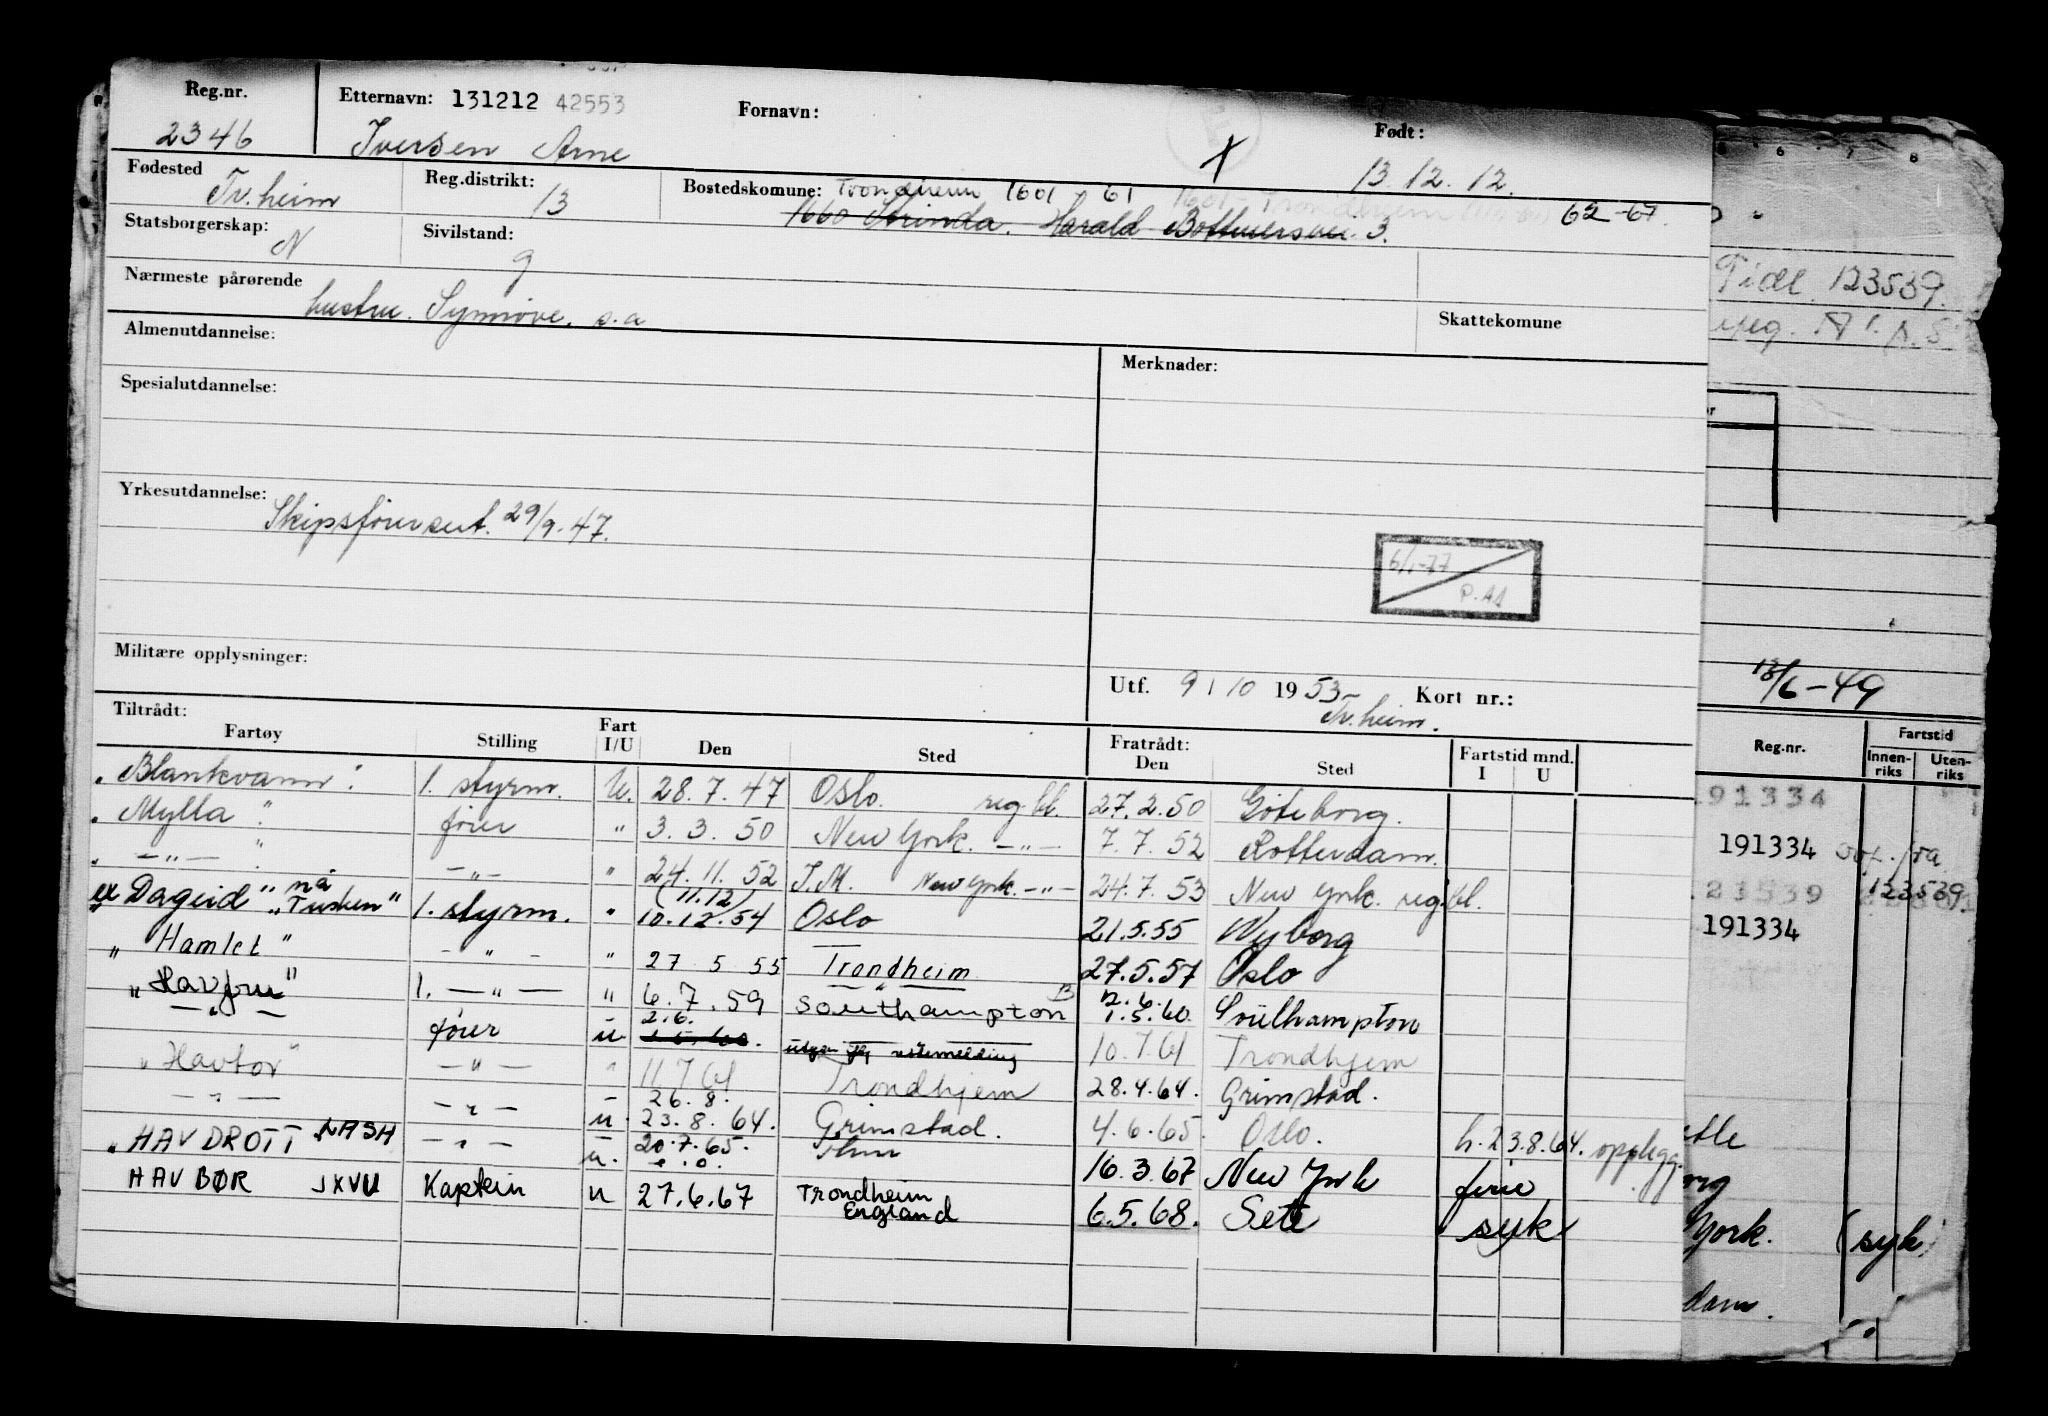 Reg.nr. Etternavn: 131212 42553 Fornavn: Født:
2346 Iversen Arne X 13.12.12.
Fødested Tr.heim Reg.distrikt: 13 Bostedskomune: Trondheim 1601 - 61 1601 - Trondhjem 62-67
1660 Strinda. Harald 3.
Statsborgerskap: N Sivilstand: g
Nærmeste pårørende hustru. Synnøve. s.a Skattekomune
Almenutdannelse: Merknader:
Spesialutdannelse:
Yrkesutdannelse: Skipsførersert. 29/9.47.
6/1-77
P.A1
Militære opplysninger:
Utf. 9 / 10 1953- Kort nr.:
Tr.heim.
Tiltrådt: Fratrådt:
Fartøy Stilling Fart I/U Den Sted Den Sted Fartstid mnd. I U
"Blankvann" 1. styrm. U. 28.7.47 Oslo. reg bl. 27.2.50 Göteborg.
"Mylla" fører " 3.3.50 New York. -"- 7.7.52 Rotterdam.
" -"- " -"- " 24.11.52 T.M. New York. -"- 24.7.53 New York. reg.bl.
ex "Dageid" nå "Tusken" 1. styrm. " (11.12) 10.12.54 Oslo 21.5.55 Wyborg
"Hamlet" -"- " 27 5 55 Trondheim 27.5.57 Oslo
"Havfru" 1. -"- " 6.7.59 Southampton 13 12.6. 1.5.60 Southampton
-"- fører u 2.6. 1.5.60. 10.7.61 Trondhjem
"Havtor" -"- " 11.7.61 Trondhjem 28.4.64. Grimstad.
-"- -"- u. 26.8. 23.8.64. Grimstad. 4.6.65. Oslo. h.23.8.64. opplegg.
"HAVDROTT LASH -"- u. 20.7.65. Thm 16.3.67 New York ferie
HAVBØR JXVU Kaptein u 27.6.67 Trondheim England 6.5.68. Sete syk
6 7 8
Tidl. 123539.
13/6-49
Reg.nr. Fartstid
Innen-riks Uten-riks
191334
191334
123539
23539
191334
York. (syk)
dam.